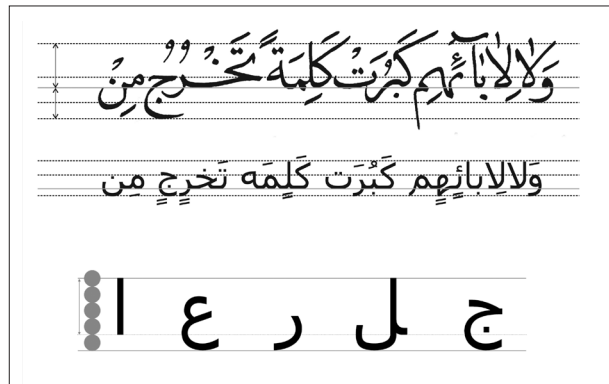 وَلَا لِاٰبَآئِهِم كَبُرَتْ كَلِمَةً تَخْرُجُ مِنْ
وَلالِابائٍهٍم كَبُرَت كَلٍمَه تَخرٍجٍ مِن
ج ل ر ع ا